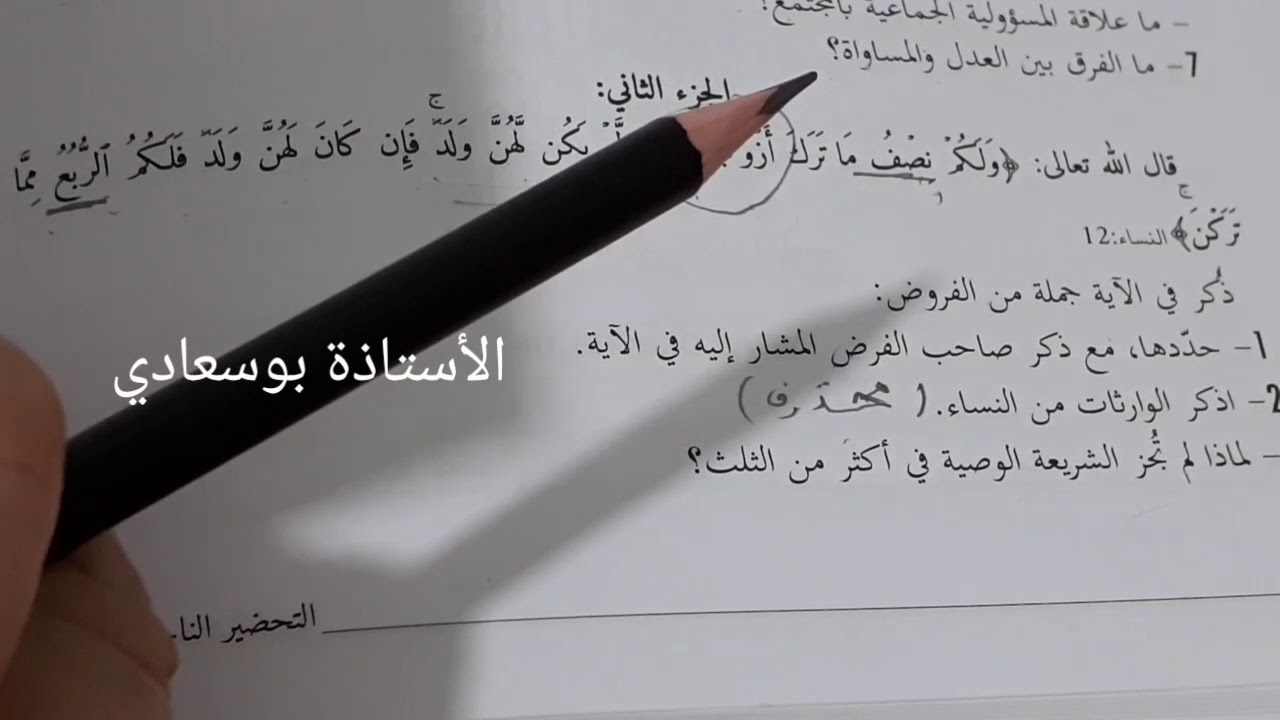 – ما علاقة المسؤولية الجماعية بالمجتمع؟
7– ما الفرق بين العدل والمساواة؟
الجزء الثاني:
ج
قال الله تعالى: ﴿وَلَكُمْ نِصْفُ مَا تَرَكَ يَكُن لَّهُنَّ وَلَدٌ فَإِن كَانَ لَهُنَّ وَلَدٌ فَلَكُمُ ٱلرُّبُعُ مِمَّا
ج
تَرَكْنَ﴾ النساء:12
ذُكر في الآية جملة من الفروض:
1– حدّدها، مع ذكر صاحب الفرض المشار إليه في الآية.
2– اذكر الوارثات من النساء. (محذوف)
– لماذا لم تُجز الشريعة الوصية في أكثر من الثلث؟
الأستاذة بوسعادي
التحضير